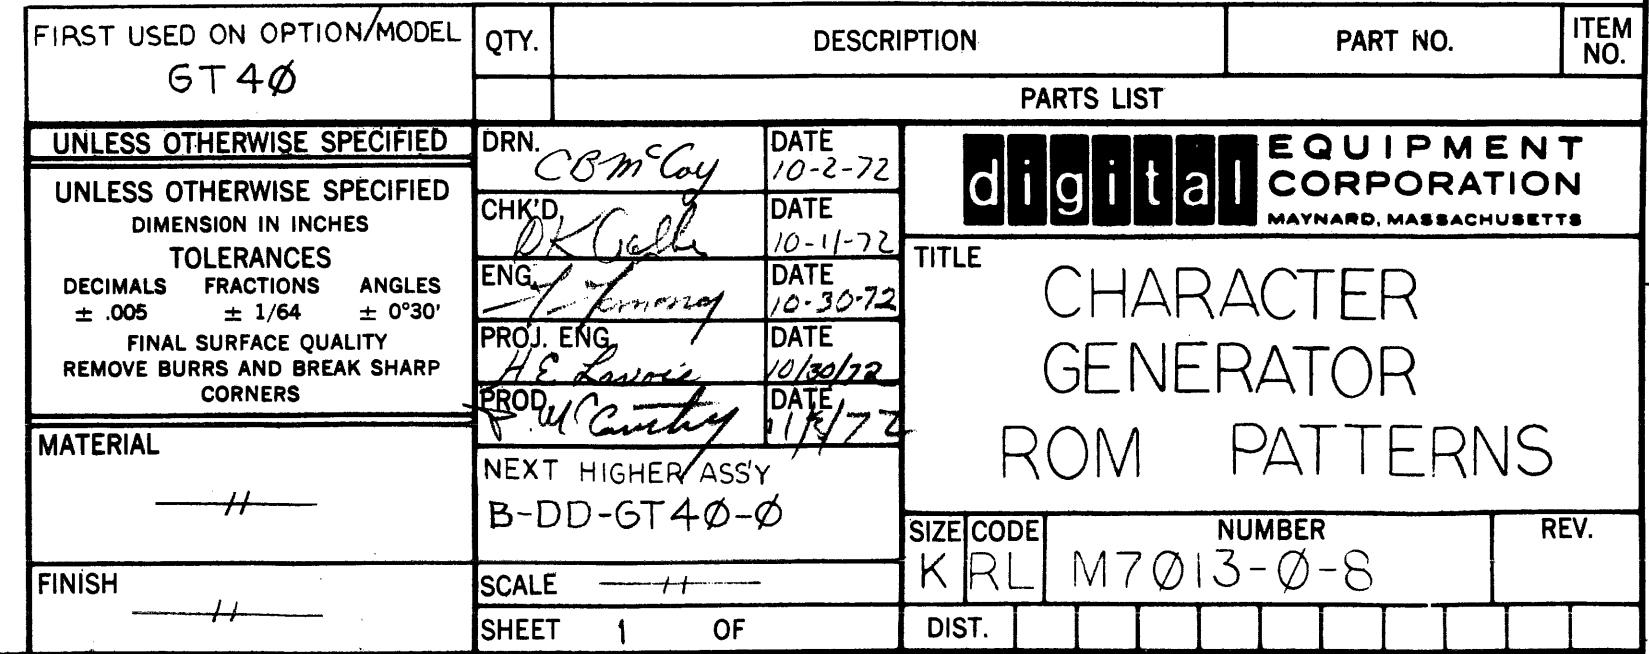 FIRST USED ON OPTION/MODEL
GT4Ø
QTY.
DESCRIPTION
PART NO.
ITEM
NO.
PARTS LIST
UNLESS OTHERWISE SPECIFIED
UNLESS OTHERWISE SPECIFIED
DIMENSION IN INCHES
TOLERANCES
DECIMALS FRACTIONS ANGLES
± .005 ± 1/64 ± 0°30'
FINAL SURFACE QUALITY
REMOVE BURRS AND BREAK SHARP
CORNERS
MATERIAL
FINISH
DRN.
CB McCoy
DATE
10-2-72
CHK'D.
DK
DATE
10-11-72
ENG.
DATE
10-30-72
PROJ. ENG.
H E Lavoie
DATE
10/30/72
PROD.
McCarthy
DATE
NEXT HIGHER ASS'Y
B-DD-GT4Ø-Ø
SCALE
SHEET 1 OF
digital
EQUIPMENT
CORPORATION
MAYNARD, MASSACHUSETTS
TITLE
CHARACTER
GENERATOR
ROM PATTERNS
SIZE CODE NUMBER REV.
K RL M7Ø13-Ø-8
DIST.